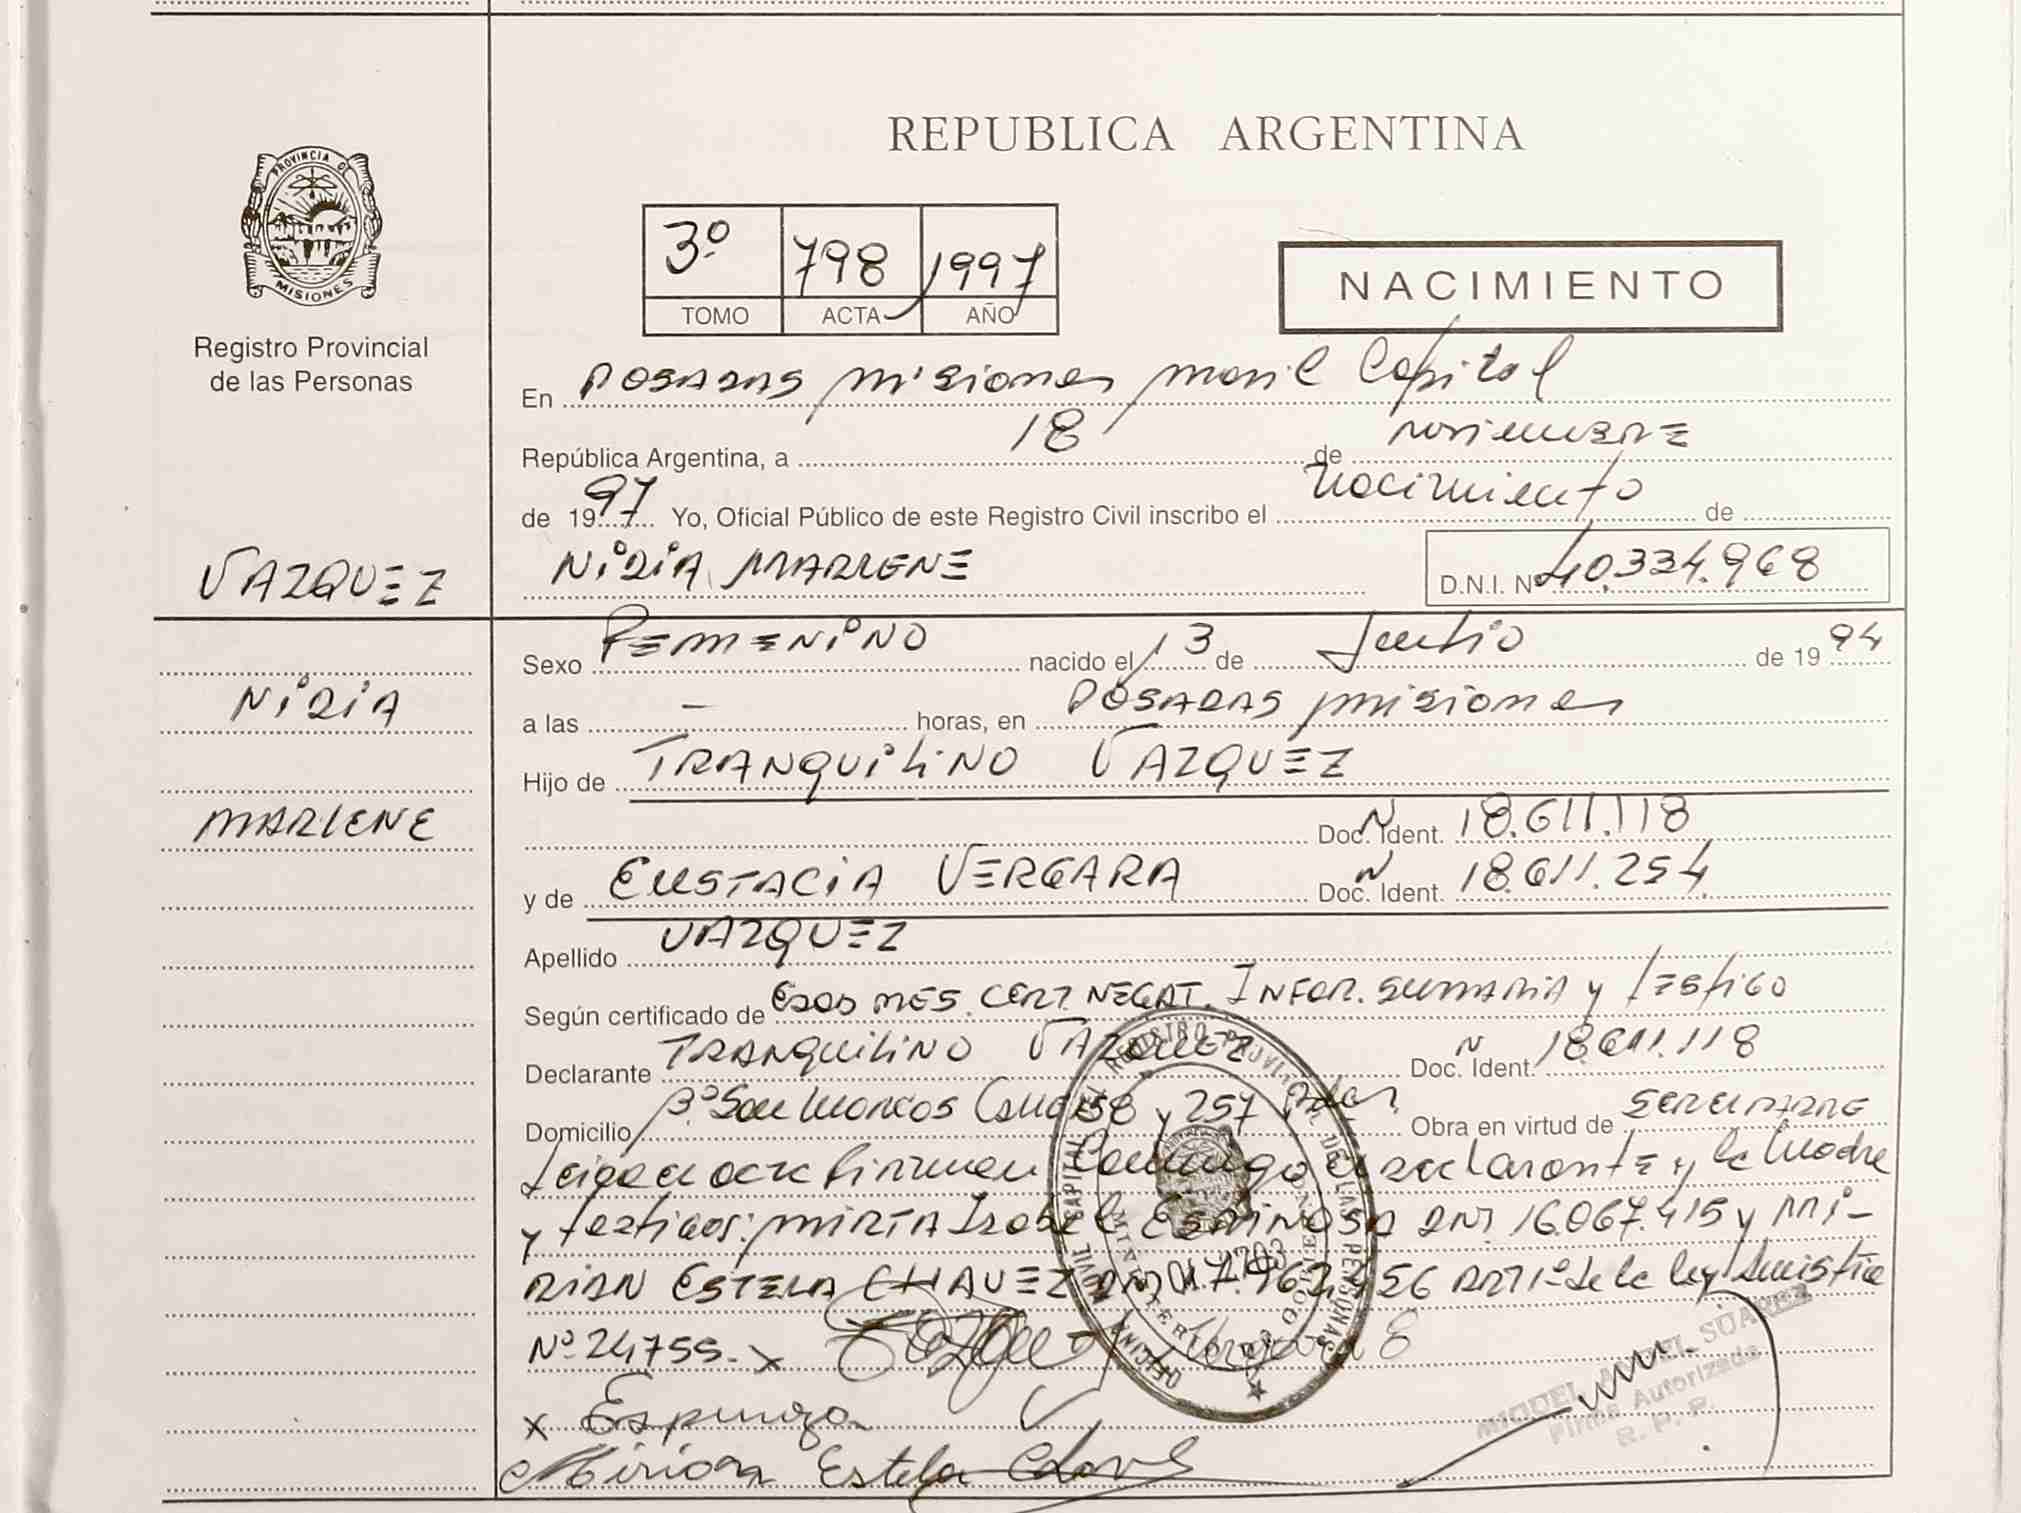 REPUBLICA ARGENTINA
PROVINCIA DE
MISIONES
Registro Provincial
de las Personas
3º 798 1997
TOMO ACTA AÑO
NACIMIENTO
En POSADAS Misiones movil Capital
República Argentina, a 18 de noviembre
de 1997 Yo, Oficial Público de este Registro Civil inscribo el nacimiento de
VAZQUEZ
NIDIA MARLENE D.N.I. Nº 40.334.968
NIDIA
MARLENE
Sexo FEMENINO nacido el 13 de Junio de 1994
a las - horas, en POSADAS Misiones
Hijo de TRANQUILINO VAZQUEZ
Doc. Ident. 18.611.118
y de EUSTACIA VERGARA Doc. Ident. 18.611.254
Apellido VAZQUEZ
Según certificado de MES. CERT. NEGAT. INFOR. SUMARIA y testigo
Declarante TRANQUILINO VAZQUEZ Doc. Ident. 18.611.118
Domicilio Bº San Marcos 158 y 257 Obra en virtud de
Leida el acta firman Conmigo el declarante y la Madre
y testigos: MIRTA Isabel ESPINOSA DNI 16.067.415 y MI-
RIAN ESTELA CHAVEZ ART 1º de la ley
Nº 24755. x
x Espinoza
Miriam Estela
OFICINA MOVIL CAPITAL DEL REGISTRO PROVINCIAL DE LAS PERSONAS
MINISTERIO DE GOBIERNO
MIGUEL ANGEL SUAREZ
Firma Autorizada
R. P. P.